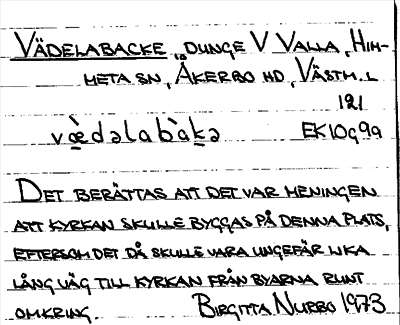 VÄDELABACKE, DUNGE V VALLA, HIM-
META SN, ÅKERBO HD, VÄSTM. L
121
væ̀dəlabàkə EK10G9a
DET BERÄTTAS ATT DET VAR MENINGEN
ATT KYRKAN SKULLE BYGGAS PÅ DENNA PLATS,
EFTERSOM DET DÅ SKULLE VARA UNGEFÄR LIKA
LÅNG VÄG TILL KYRKAN FRÅN BYARNA RUNT
OMKRING. BIRGITTA NURBO 1973